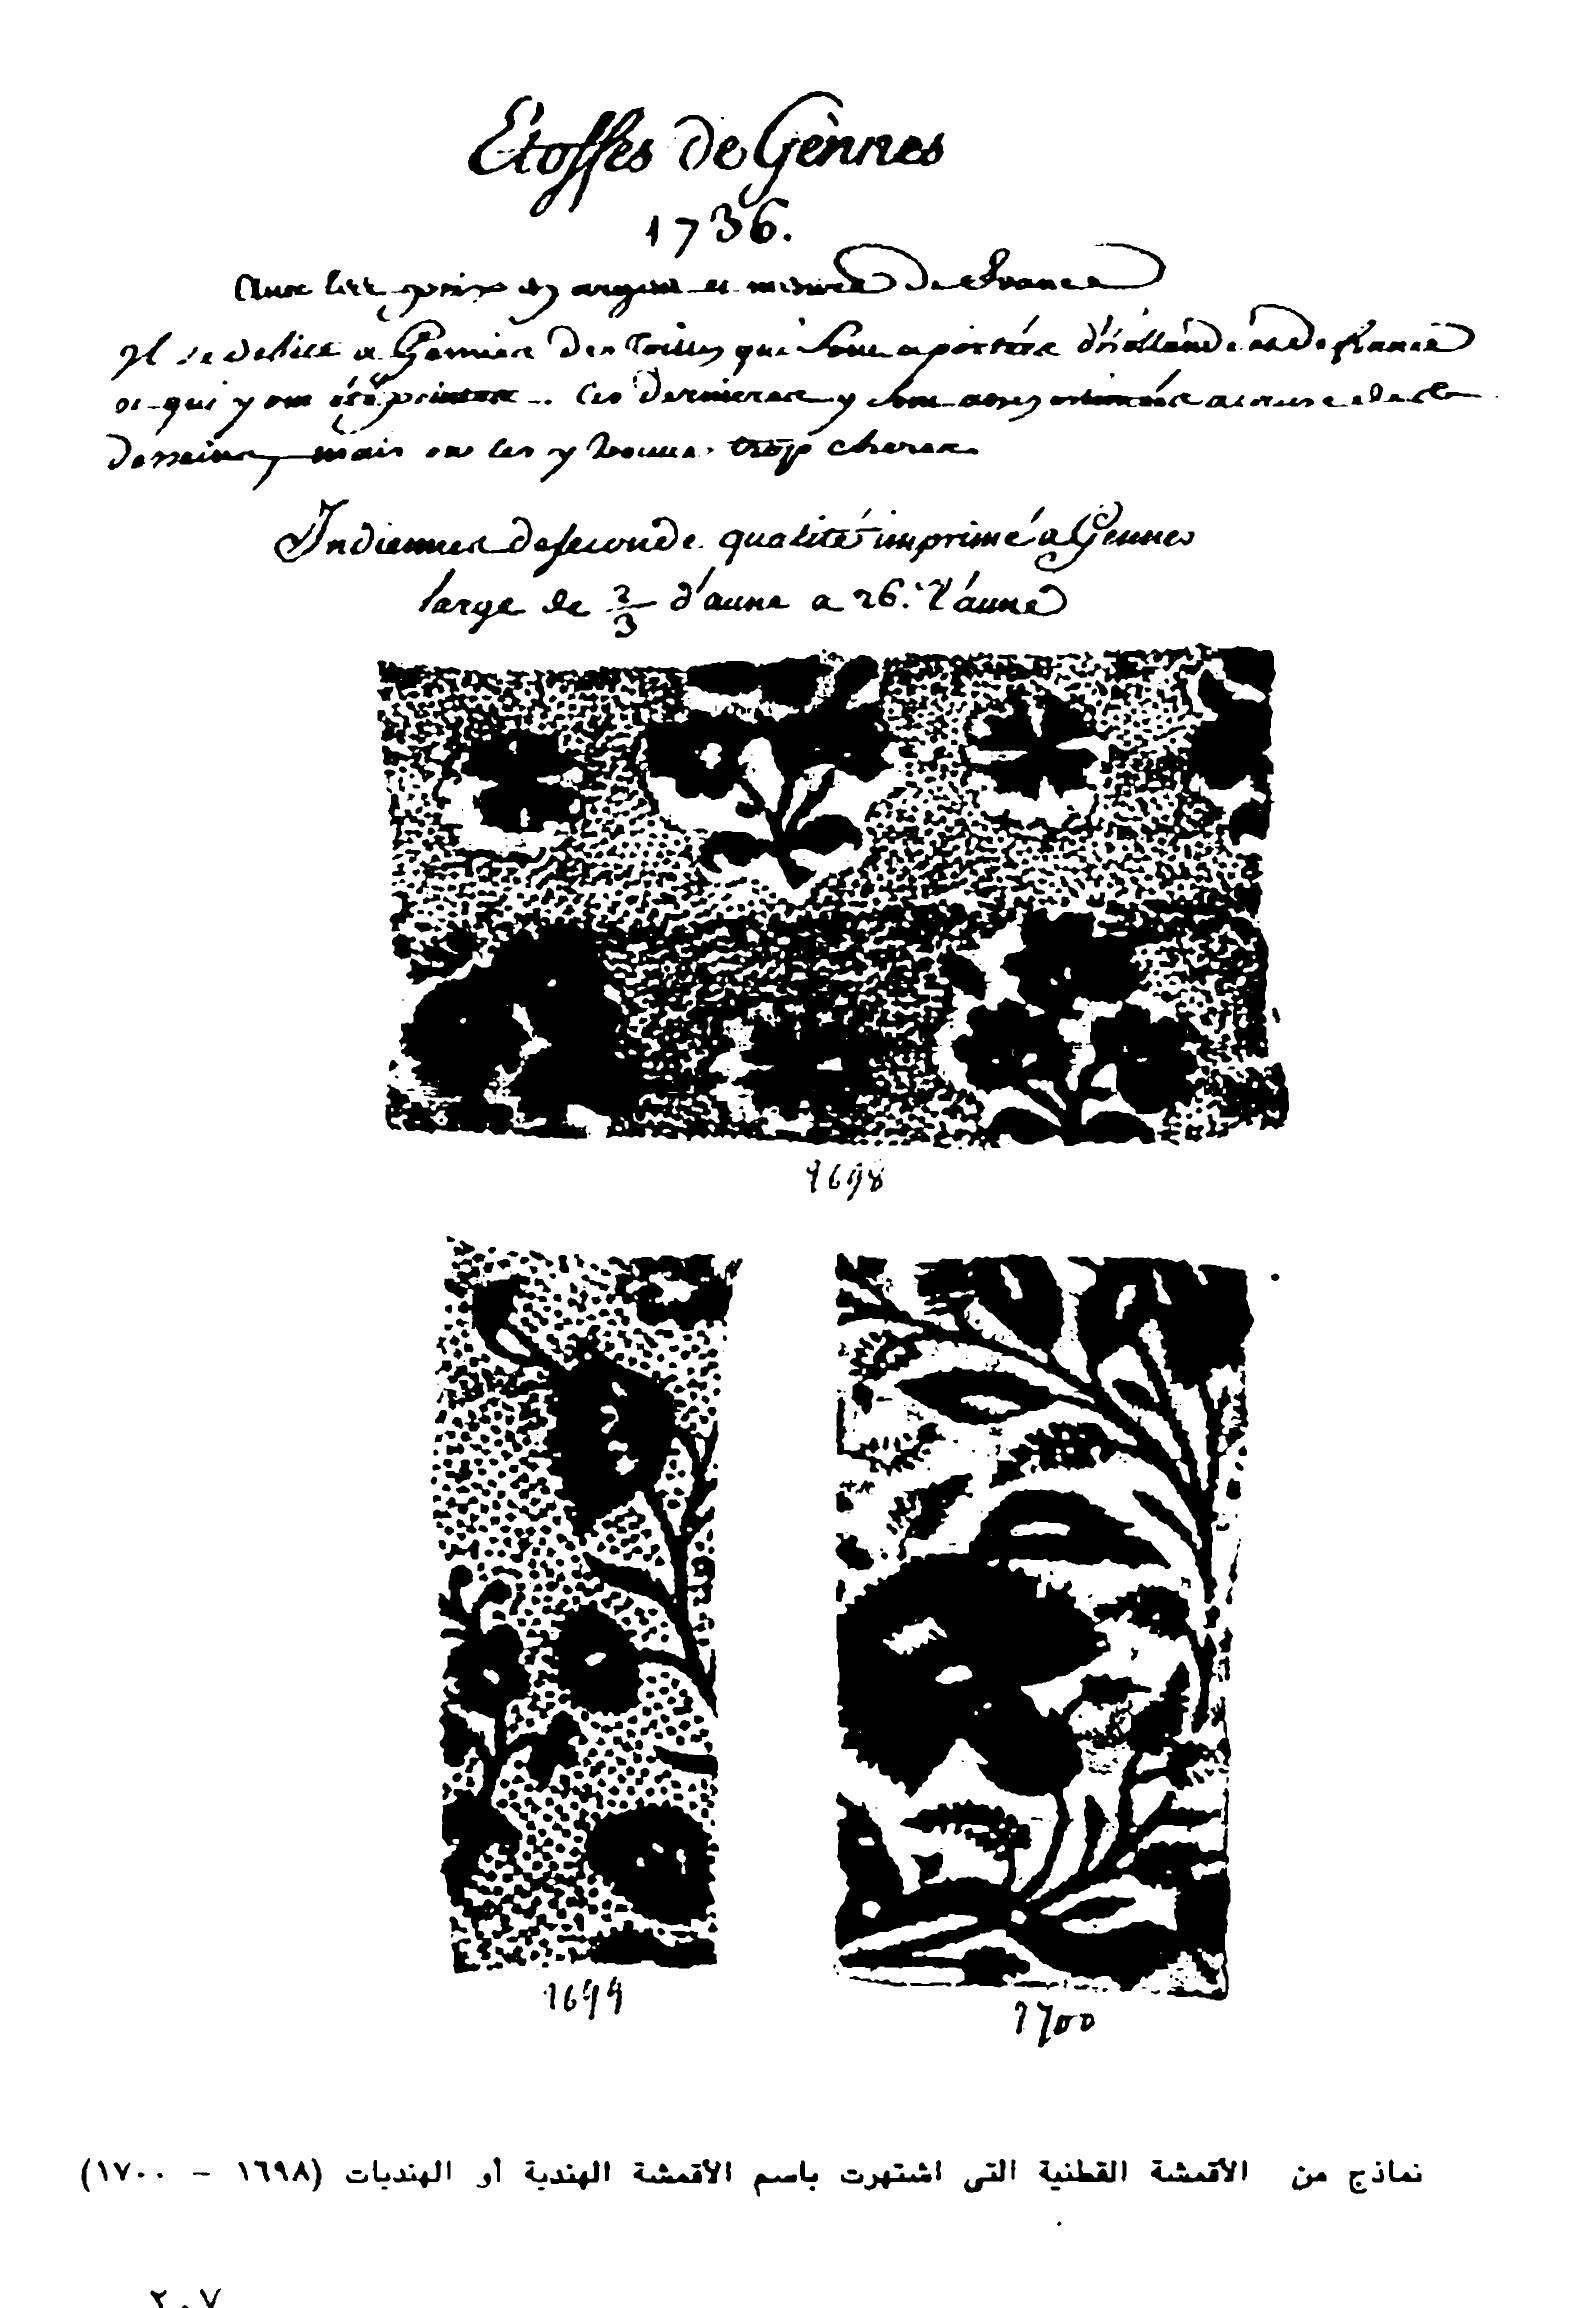 Etoffes de Gènnes
1736.
Avec les prix en argent et mesure de France
Il se debite a Gennes des Toiles qui sont aportée d'hollande et de france
et qui y ont été peintes .. Ces dernieres y sont assez estimées a cause de
desseins, mais on les y trouve trop cheres
Indiennes de seconde qualité imprimé a Gennes
large de 2/3 d'aune a 26. l'aune
1698
1699
1700
نماذج من الأقمشة القطنية التى اشتهرت باسم الأقمشة الهندية أو الهنديات (١٦٩٨ – ١٧٠٠)
٢٠٧